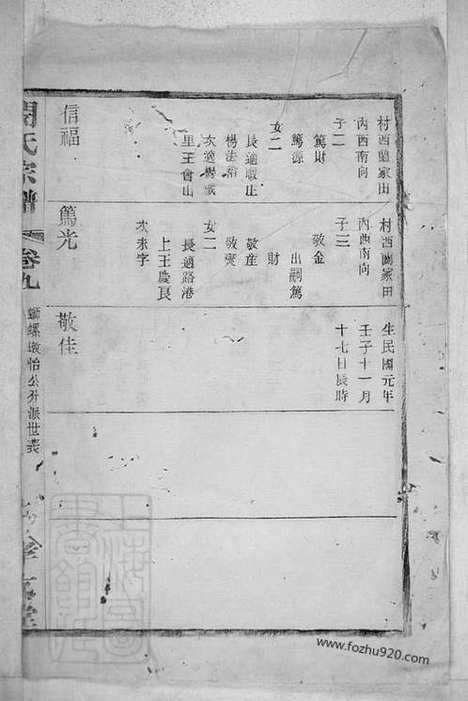 村西蘭家田
丙酉南向
子二
篤財
篤源
女二
長適
楊法裕
次適
里王會山
信福
村西蘭家田
丙酉南向
子三
敬金
出嗣篤
財
敬産
敬
女二
長適路港
上王慶良
次未字
篤光
生民國元年
壬子十一月
十七日辰時
敬佳
氏宗譜
卷九
怡公分派世表
www.fozhu920.com